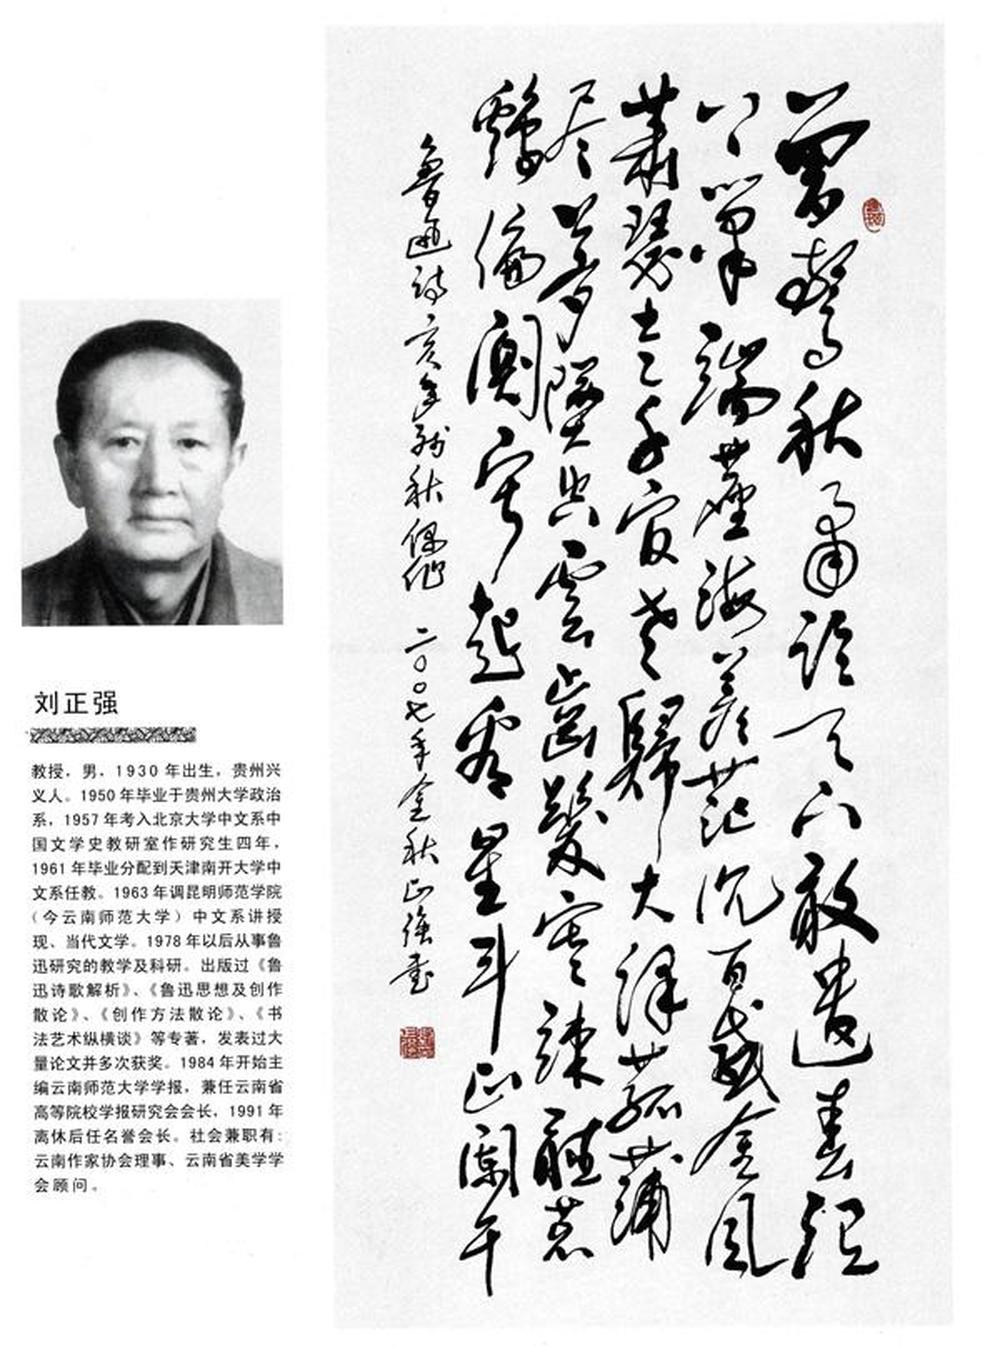 刘正强
教授，男，1930 年出生，贵州兴
义人。1950 年毕业于贵州大学政治
系，1957 年考入北京大学中文系中
国文学史教研室作研究生四年，
1961 年毕业分配到天津南开大学中
文系任教。1963 年调昆明师范学院
（今云南师范大学）中文系讲授
现、当代文学。1978 年以后从事鲁
迅研究的教学及科研。出版过《鲁
迅诗歌解析》、《鲁迅思想及创作
散论》、《创作方法散论》、《书
法艺术纵横谈》等专著，发表过大
量论文并多次获奖。1984 年开始主
编云南师范大学学报，兼任云南省
高等院校学报研究会会长，1991 年
离休后任名誉会长。社会兼职有：
云南作家协会理事、云南省美学学
会顾问。
曾驚秋肅临天下敢遣春温
上筆端塵海蒼茫沉百感金風
蕭瑟走千官老歸大澤菰蒲
尽夢墜空雲齒髮寒竦聽荒
鷄偏闃寂起看星斗正闌干
魯迅詩亥年残秋偶作 二〇〇七年金秋正強書